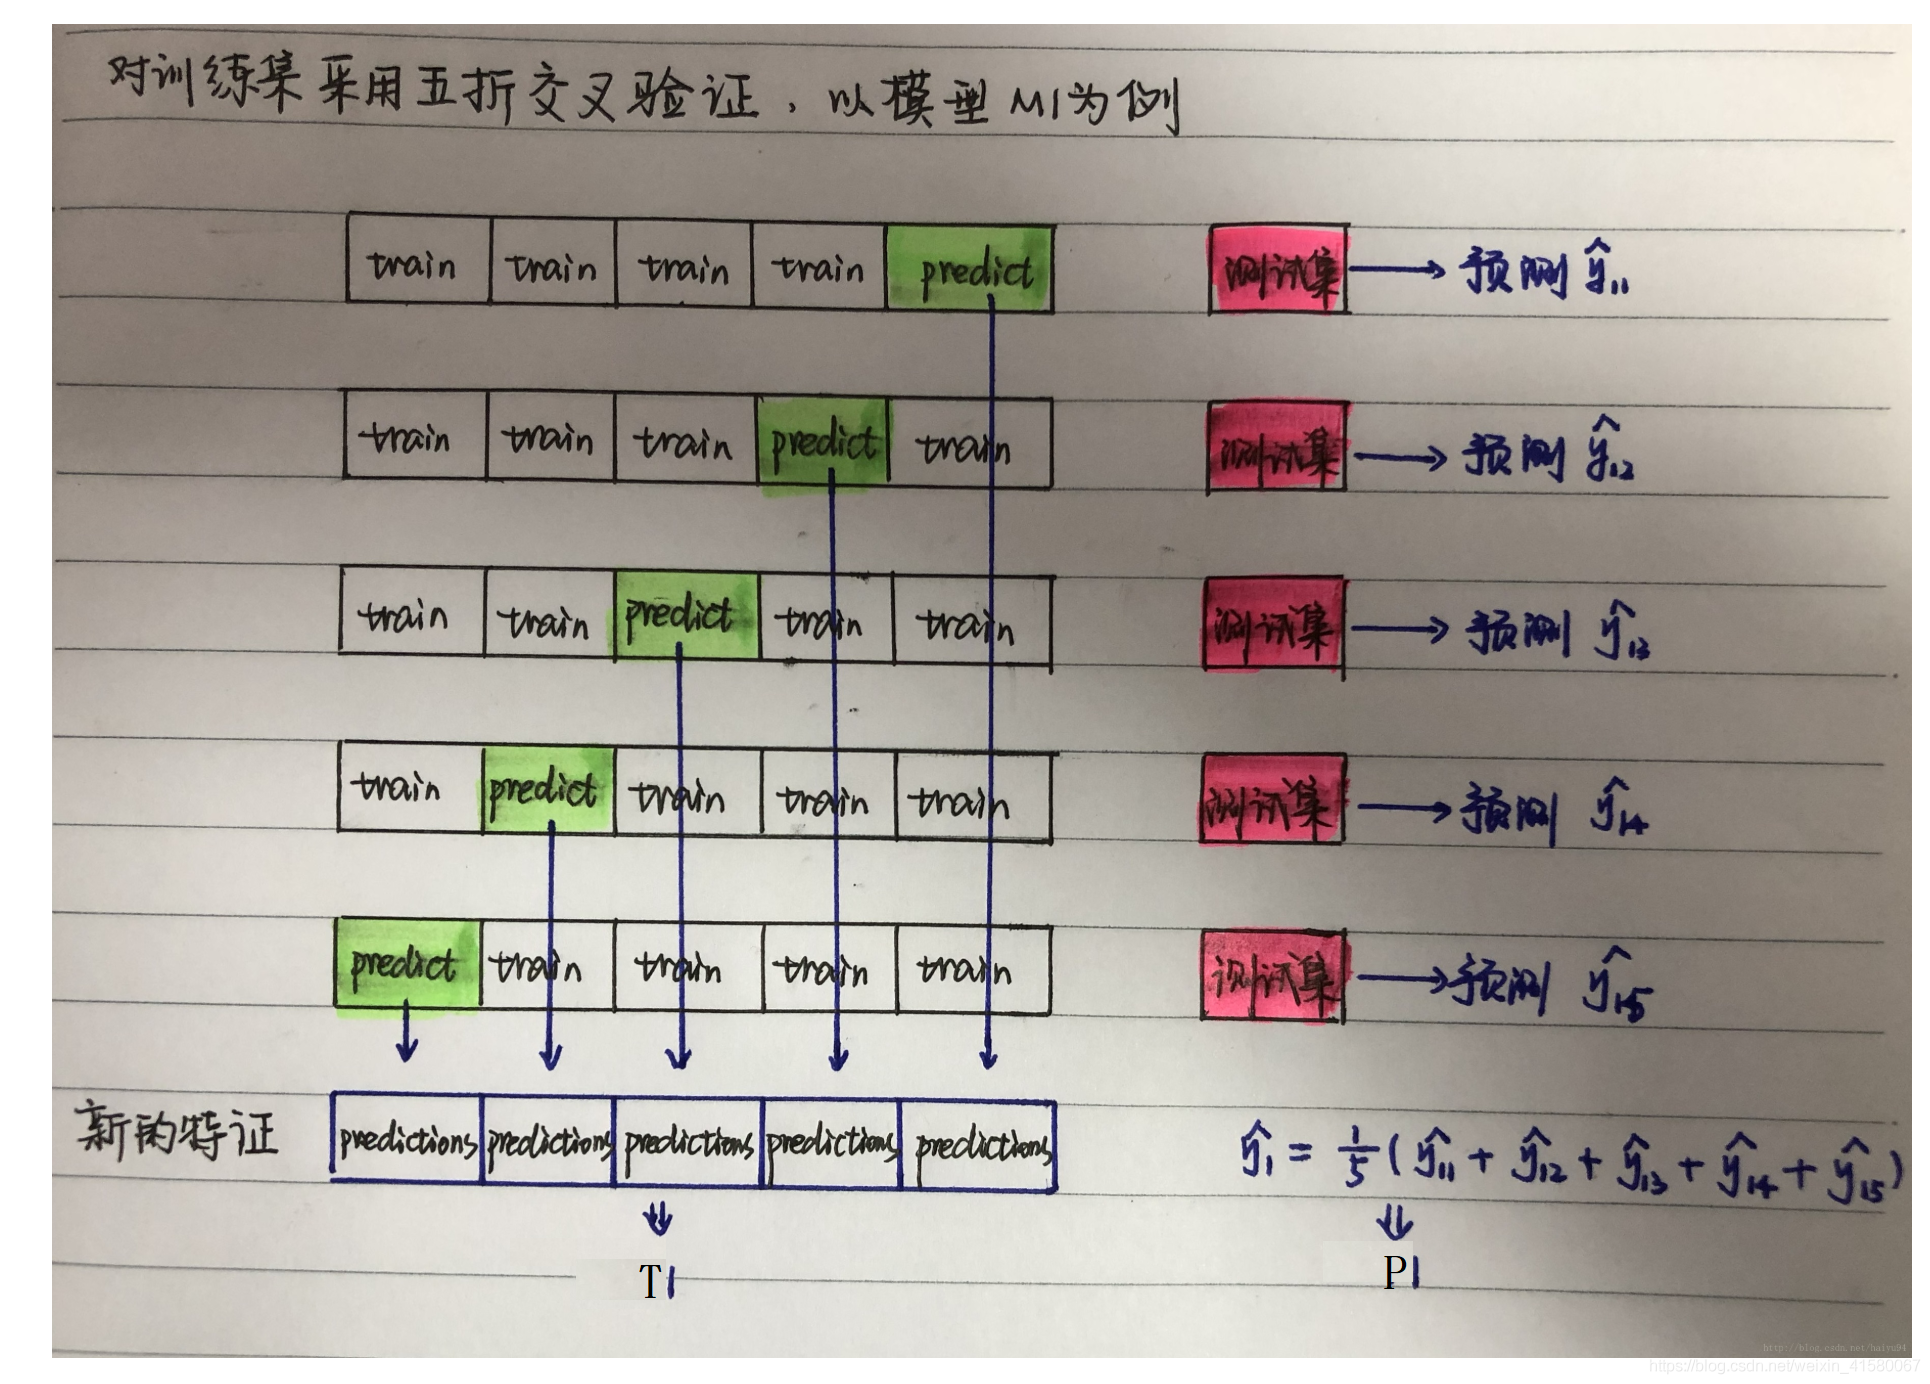 对训练集采用五折交叉验证，以模型M1为例
train train train train predict 测试集 → 预测 ŷ₁₁
train train train predict train 测试集 → 预测 ŷ₁₂
train train predict train train 测试集 → 预测 ŷ₁₃
train predict train train train 测试集 → 预测 ŷ₁₄
predict train train train train 测试集 → 预测 ŷ₁₅
新的特证 predictions predictions predictions predictions predictions ŷ₁ = 1/5 (ŷ₁₁ + ŷ₁₂ + ŷ₁₃ + ŷ₁₄ + ŷ₁₅)
T1 P1
http://blog.csdn.net/haiyu94
https://blog.csdn.net/weixin_41580067